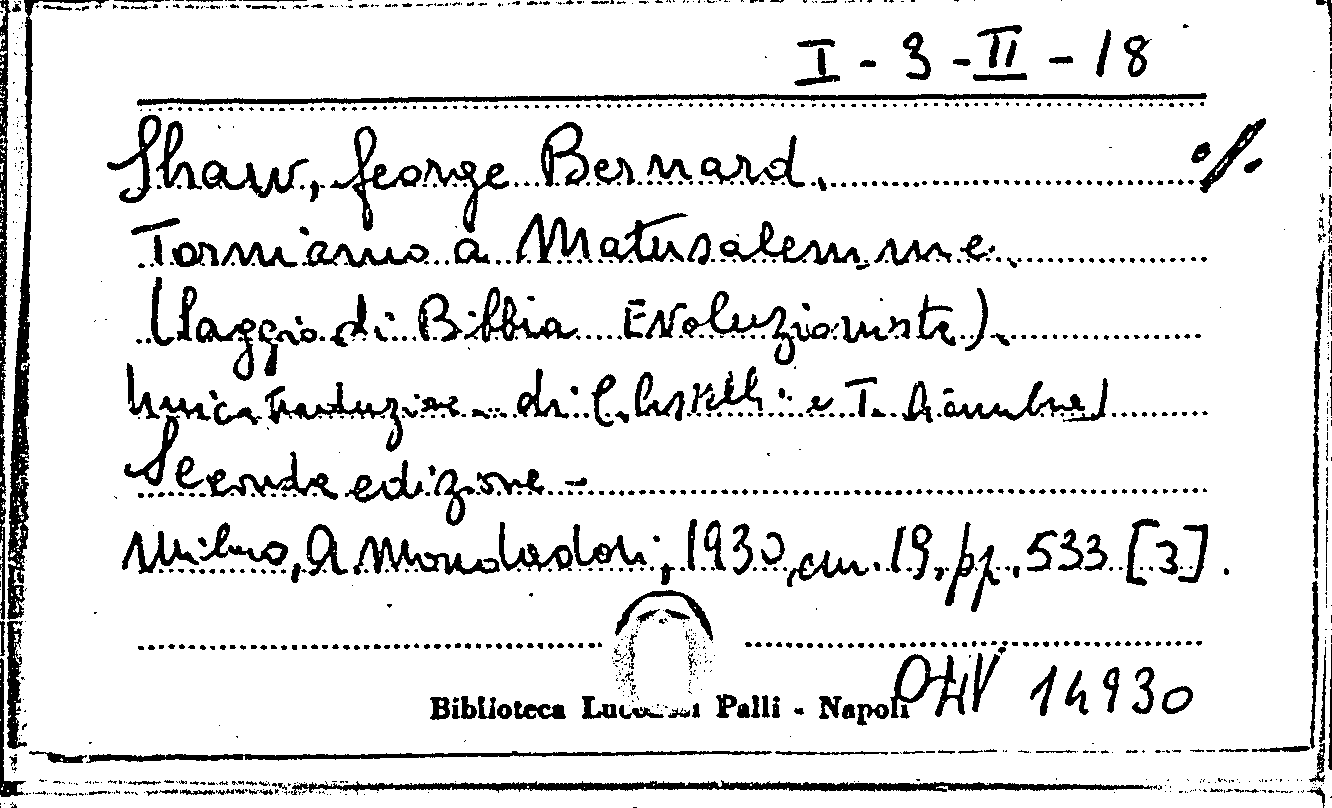 I - 3 - II - 18
Shaw, George Bernard.
Torniamo a Matusalemme.
(Saggio di Bibbia Evoluzionista).
Unica traduzione di C. Castelli e T.
Seconda edizione -
Milano, A Mondadori, 1930, cm. 19, pp. 533 [3].
Biblioteca Lucchesi Palli - Napoli
14930